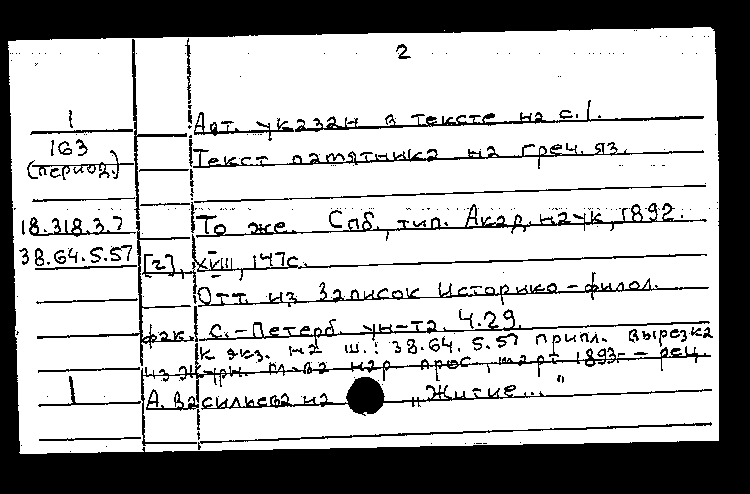 2
1 Авт. указан в тексте на с.1.
163
(период.) Текст памятника на греч. яз.
18.318.3.7 То же. Спб., тип. Акад. наук, 1892.
38.64.5.57 [2], XVIII, 147с.
Отт. из Записок Историко-филол.
фак. С.-Петерб. ун-та. Ч.29.
К экз. на ш.: 38.64.5.57 припл. вырезка
из журн. М-ва нар. прос., март 1893 - рец.
А. Васильева на „Житие..."